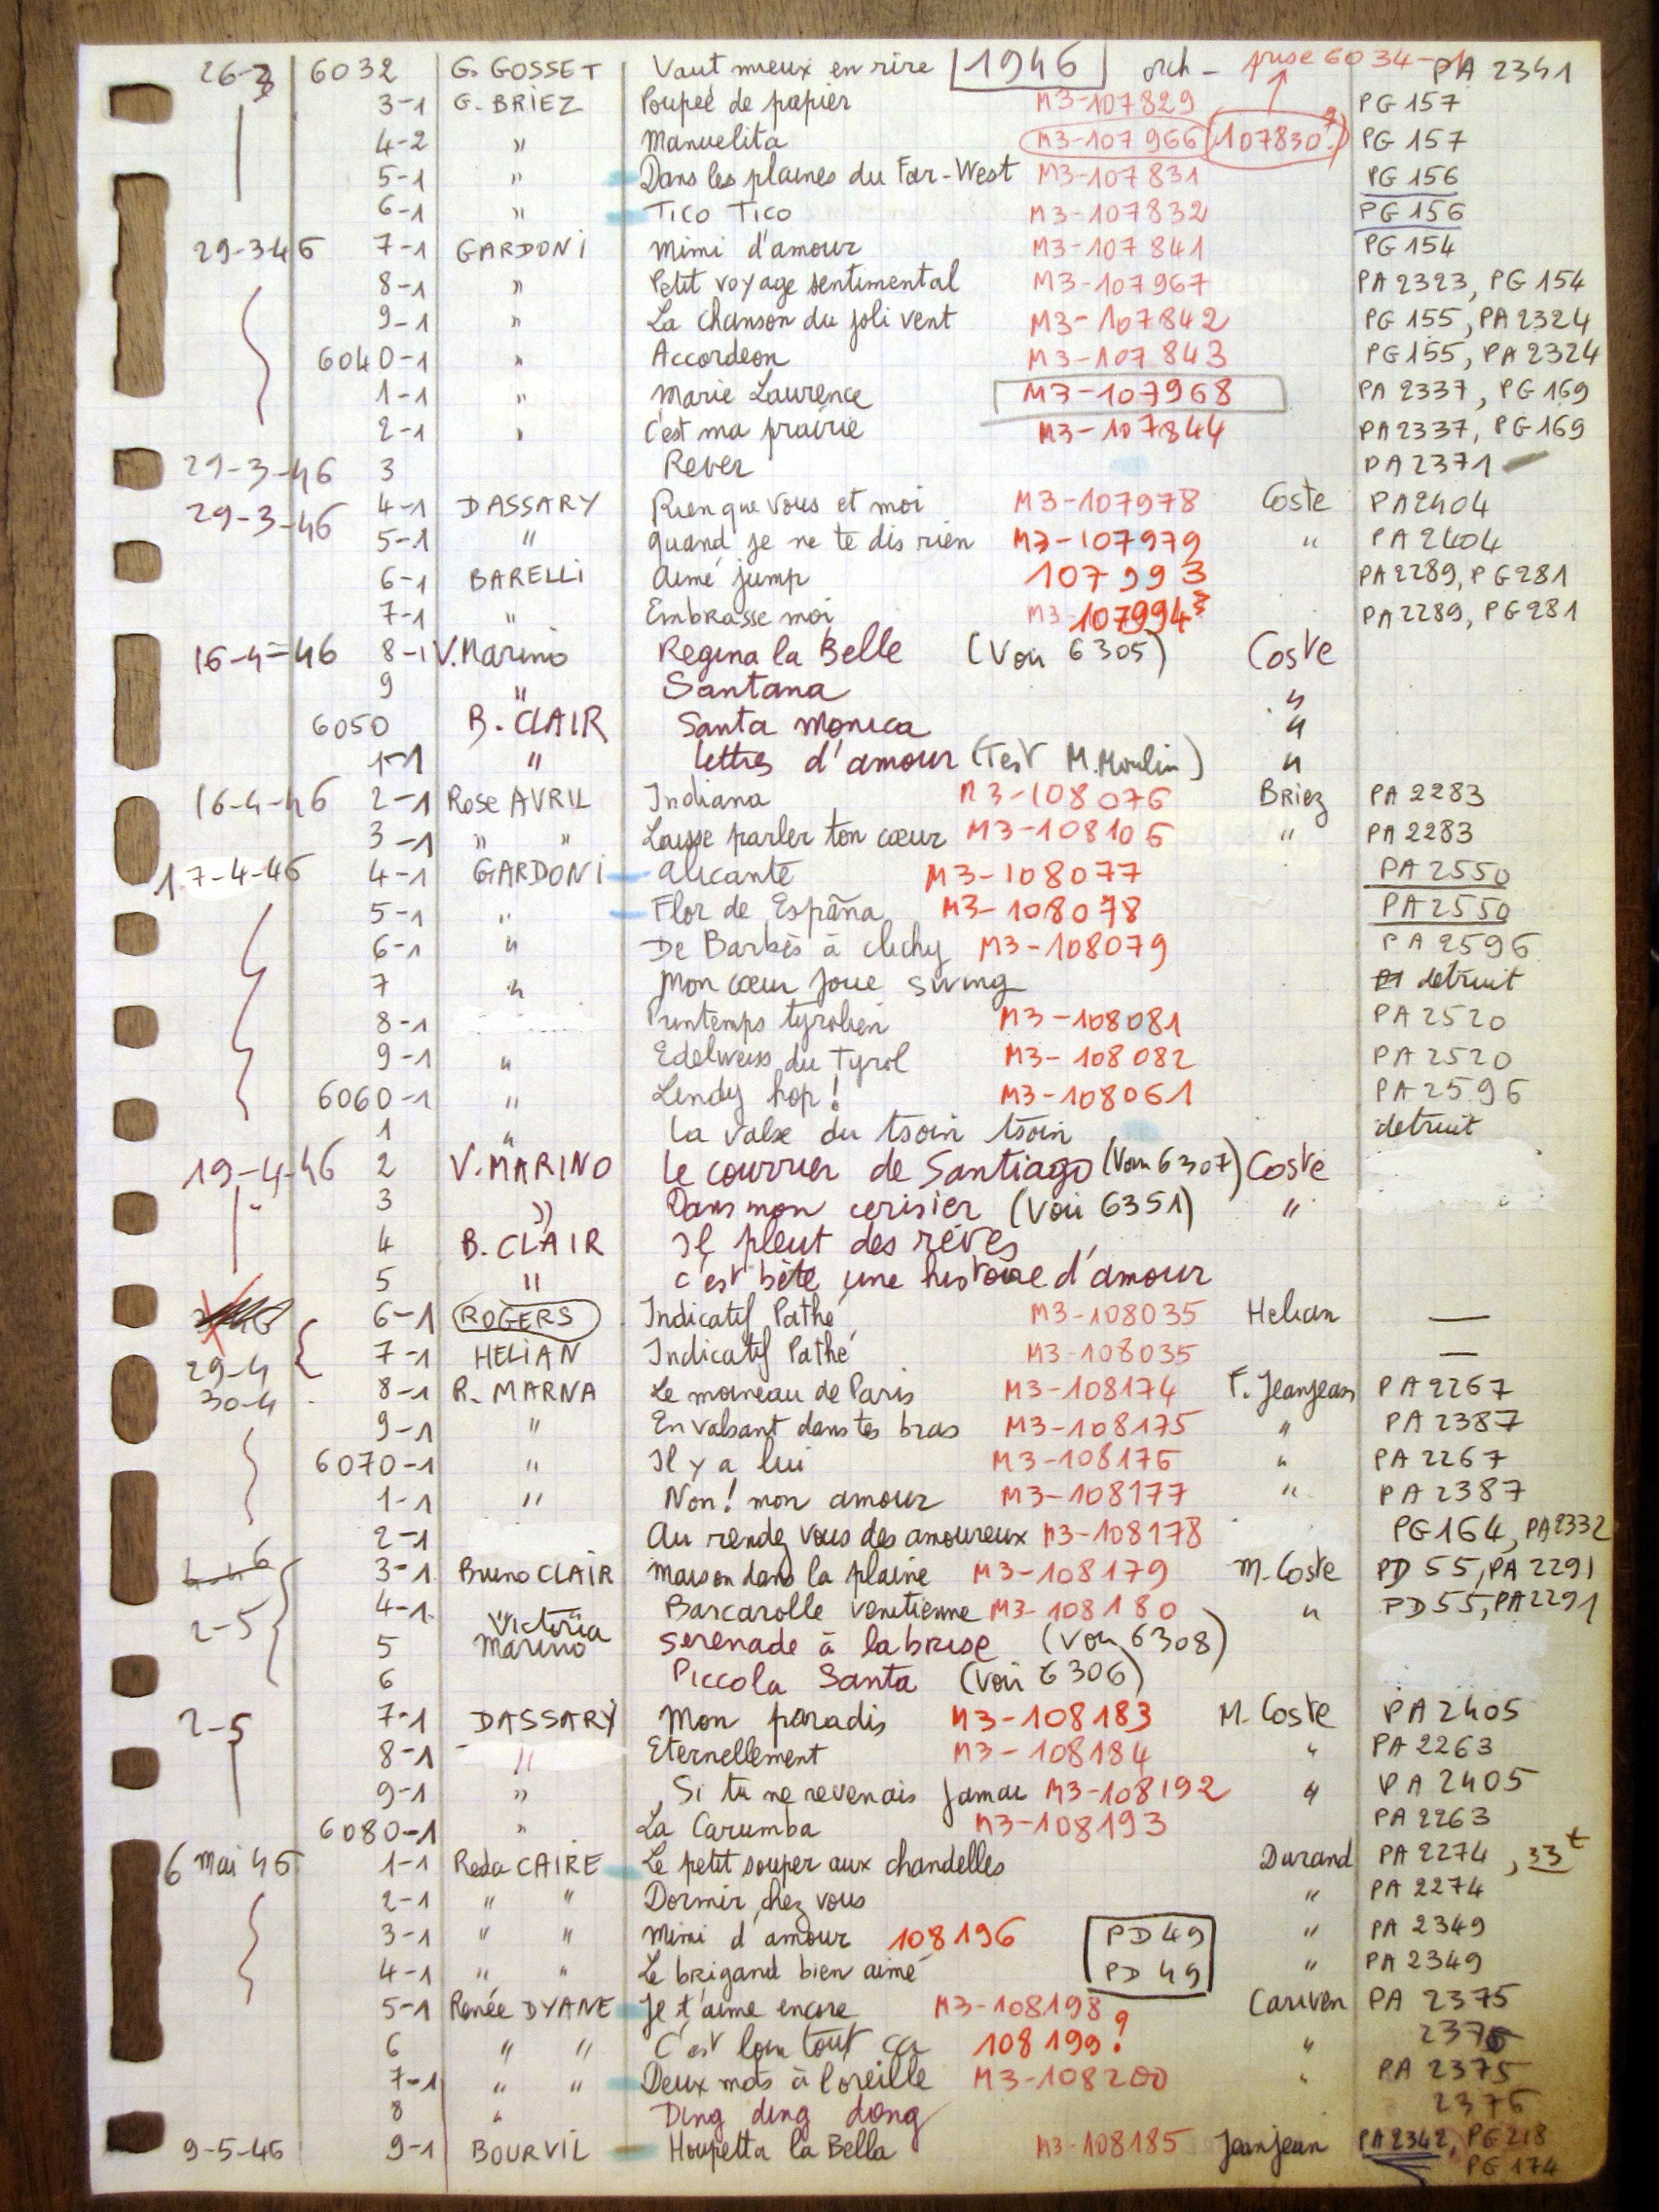 26-3 6032 G. GOSSET Vaut mieux en rire 1946 orch - prise 6034- PA 2341
3-1 G. BRIEZ Poupeé de papier M3-107829 PG 157
4-2 " Manuelita M3-107966 107830? PG 157
5-1 " Dans les plaines du Far-West M3-107831 PG 156
6-1 " Tico Tico M3-107832 PG 156
29-346 7-1 GARDONI Mimi d'amour M3-107841 PG 154
8-1 " Petit voyage sentimental M3-107967 PA 2323, PG 154
9-1 " La chanson du joli vent M3-107842 PG 155, PA 2324
6040-1 " Accordeon M3-107843 PG 155, PA 2324
1-1 " Marie Laurence M3-107968 PA 2337, PG 169
2-1 " C'est ma prairie M3-107844 PA 2337, PG 169
29-3-46 3 Rever PA 2371
29-3-46 4-1 DASSARY Rien que vous et moi M3-107978 Coste PA 2404
5-1 " quand je ne te dis rien M3-107979 " PA 2404
6-1 BARELLI Aimé jump 107993 PA 2289, PG 281
7-1 " Embrasse moi M3-107994 PA 2289, PG 281
16-4-46 8-1 V. Marino Regina la Belle (Voir 6305) Coste
9 " Santana "
6050 B. CLAIR Santa Monica "
1-1 " Lettres d'amour (Test M. Moulin) "
16-4-46 2-1 Rose AVRIL Indiana M3-108076 Briez PA 2283
3-1 " " Laisse parler ton cœur M3-108106 " PA 2283
17-4-46 4-1 GARDONI Alicante M3-108077 PA 2550
5-1 " Flor de España M3-108078 PA 2550
6-1 " De Barbès à Clichy M3-108079 PA 2596
7 " Mon cœur joue swing detruit
8-1 Printemps tyrolien M3-108081 PA 2520
9-1 " Edelweiss du Tyrol M3-108082 PA 2520
6060-1 " Lindy hop! M3-108061 PA 2596
1 " La valse du tsoin tsoin detruit
19-4-46 2 V. MARINO Le courrier de Santiago (Voir 6307) Coste
3 " Dans mon cerisier (Voir 6351) "
4 B. CLAIR Il pleut des rêves
5 " C'est bête une histoire d'amour
6-1 ROGERS Indicatif Pathé M3-108035 Helian —
29-4 7-1 HELIAN Indicatif Pathé M3-108035 —
30-4 8-1 R. MARNA Le moineau de Paris M3-108174 F. Jeanjean PA 2267
9-1 " En valsant dans tes bras M3-108175 " PA 2387
6070-1 " Il y a lui M3-108176 " PA 2267
1-1 " Non! mon amour M3-108177 " PA 2387
2-1 Au rendez vous des amoureux M3-108178 PG 164, PA 2332
3-1 Bruno CLAIR Maison dans la plaine M3-108179 M. Coste PD 55, PA 2291
2-5 4-1 Barcarolle venitienne M3-108180 " PD 55, PA 2291
5 Victoria Marino Serenade à la brise (Voir 6308)
6 Piccola Santa (Voir 6306)
2-5 7-1 DASSARY Mon paradis M3-108183 M. Coste PA 2405
8-1 " Eternellement M3-108184 " PA 2263
9-1 " Si tu ne revenais jamais M3-108192 " PA 2405
6080-1 " La Carumba M3-108193 PA 2263
6 Mai 46 1-1 Reda CAIRE Le petit souper aux chandelles Durand PA 2274, 33t
2-1 " " Dormir chez vous " PA 2274
3-1 " " Mimi d'amour 108196 PD 49 " PA 2349
4-1 " " Le brigand bien aimé PD 49 " PA 2349
5-1 Renée DYANE Je t'aime encore M3-108198 Cariven PA 2375
6 " " C'est loin tout ça 108199? " 2376
7-1 " " Deux mots à l'oreille M3-108200 " PA 2375
8 " Ding ding dong 2376
9-5-46 9-1 BOURVIL Houpetta la Bella M3-108185 Jeanjean PA 2342, PG 218
PG 174